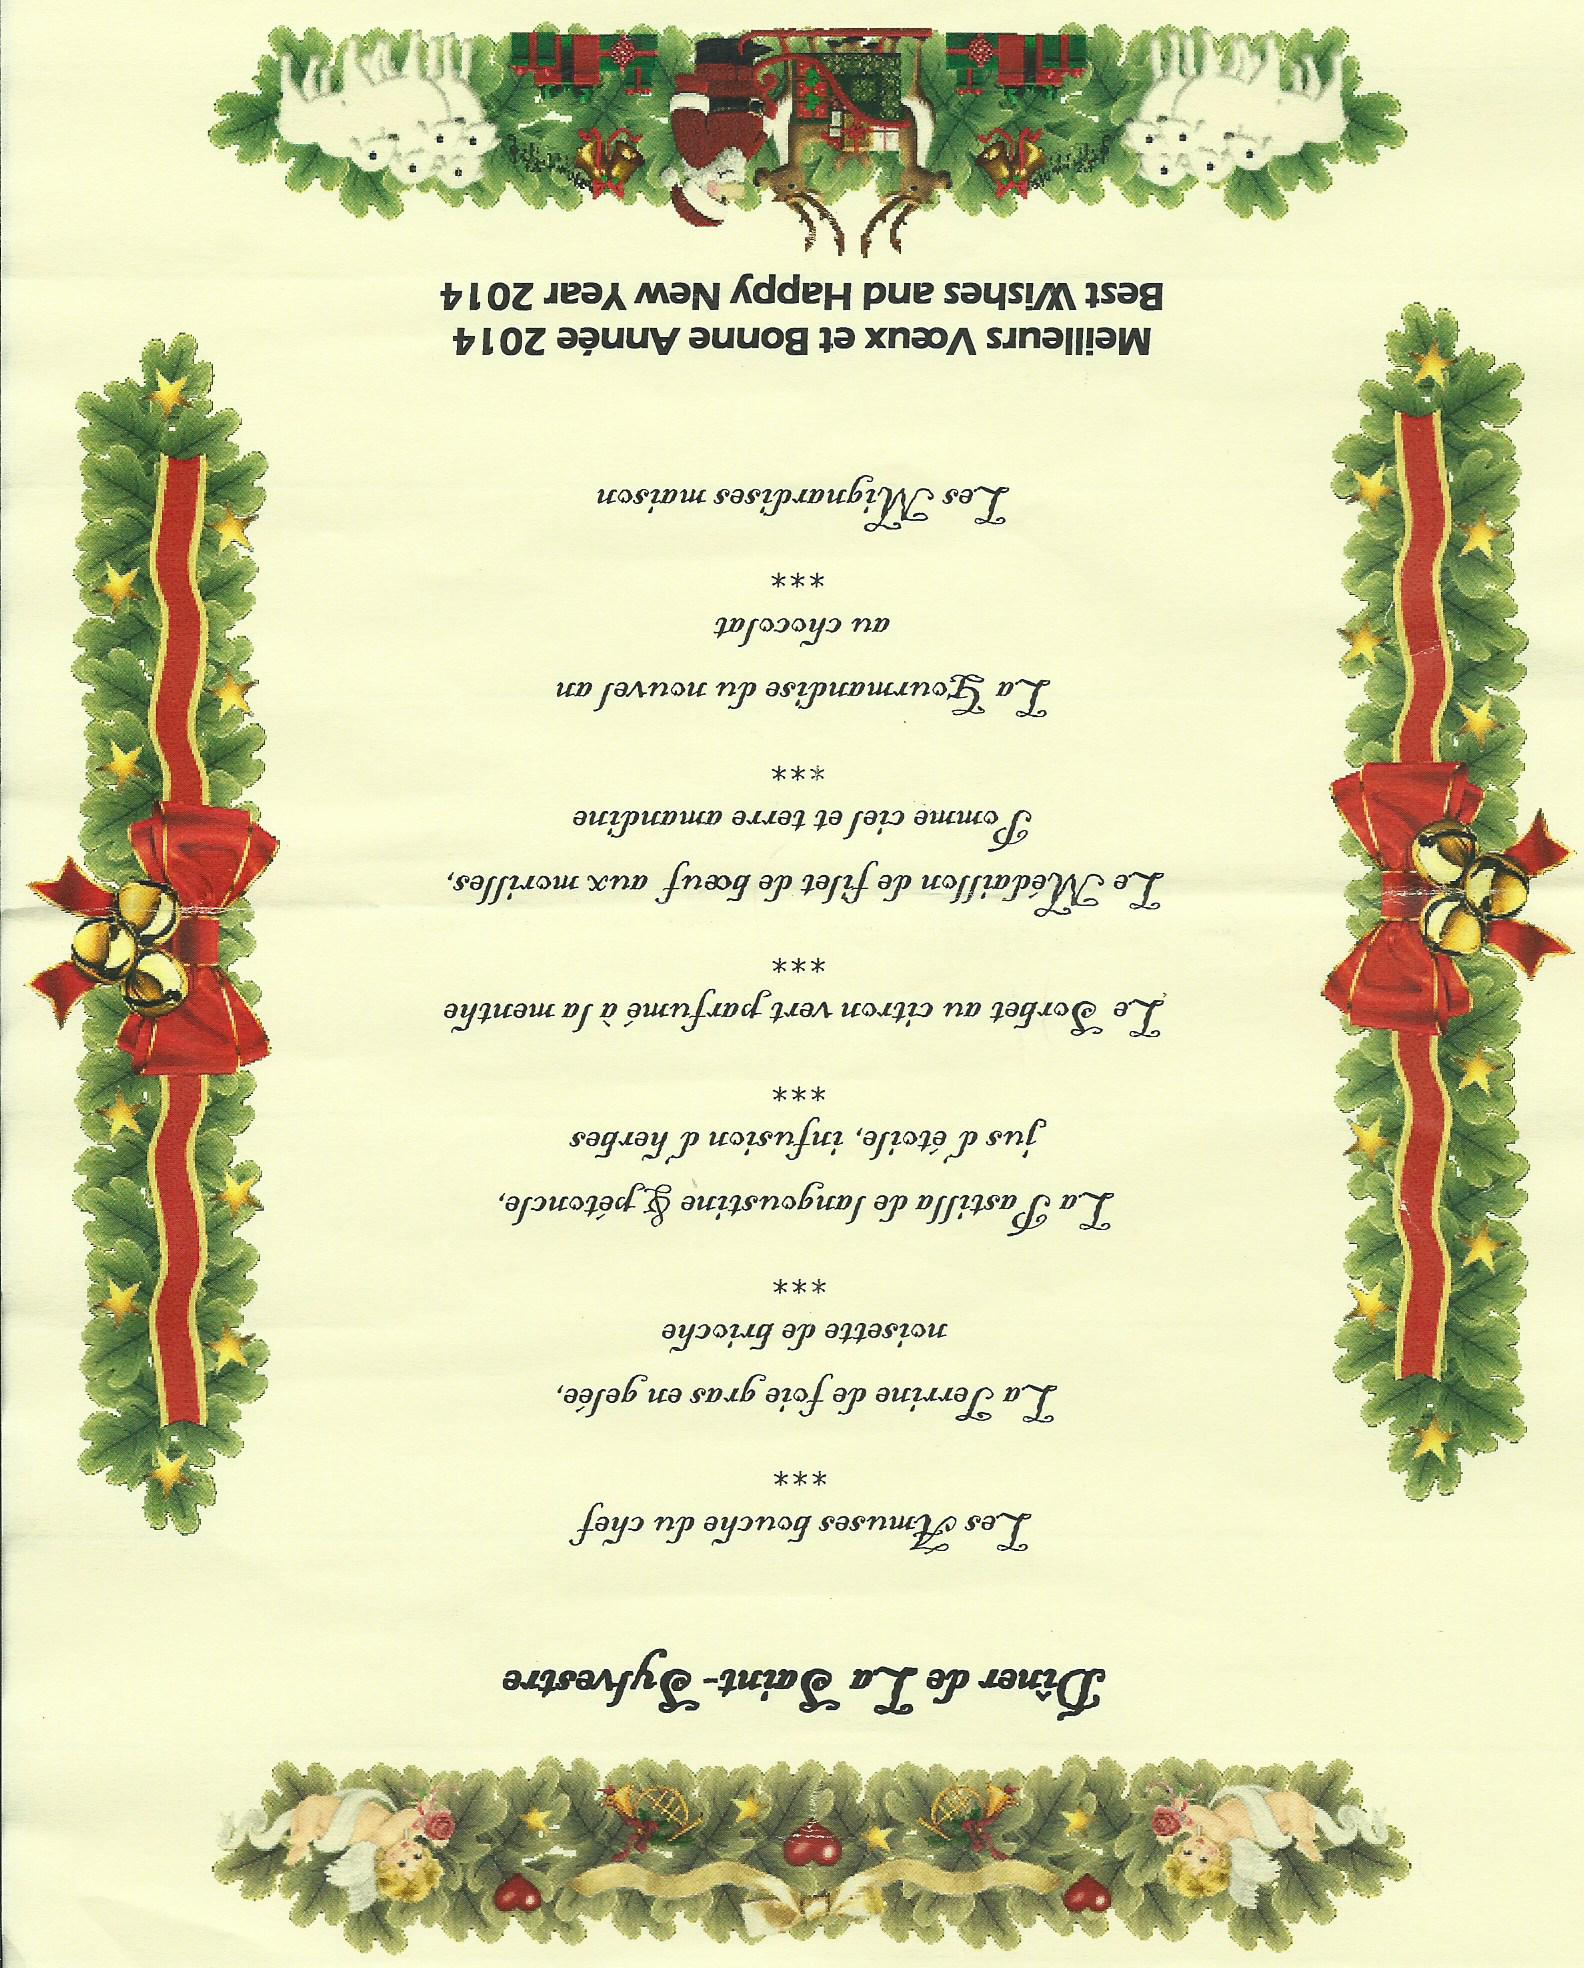 Dîner de La Saint-Sylvestre
Les Amuses bouche du chef
***
La Terrine de foie gras en gelée,
noisette de brioche
***
La Pastilla de langoustine & pétoncle,
jus d étoile, infusion d herbes
***
Le Sorbet au citron vert parfumé à la menthe
***
Le Médaillon de filet de bœuf aux morilles,
Pomme ciel et terre amandine
***
La Gourmandise du nouvel an
au chocolat
***
Les Mignardises maison
Meilleurs Vœux et Bonne Année 2014
Best Wishes and Happy New Year 2014